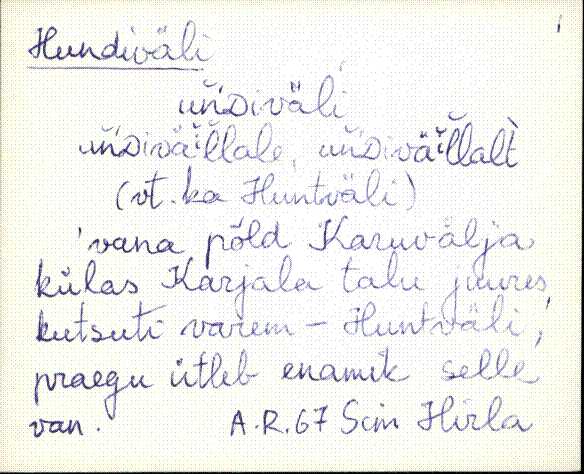 Hundiväli
uńDiväli
uńDiväĭllale, uńDiväĭllalt
(vt. ka Huntväli)
vana põld Karuvälja
külas Karjala talu juures
kutsuti varem – Huntväli,
praegu ütleb enamik selle
van. A.R. 67 Sim Hirla